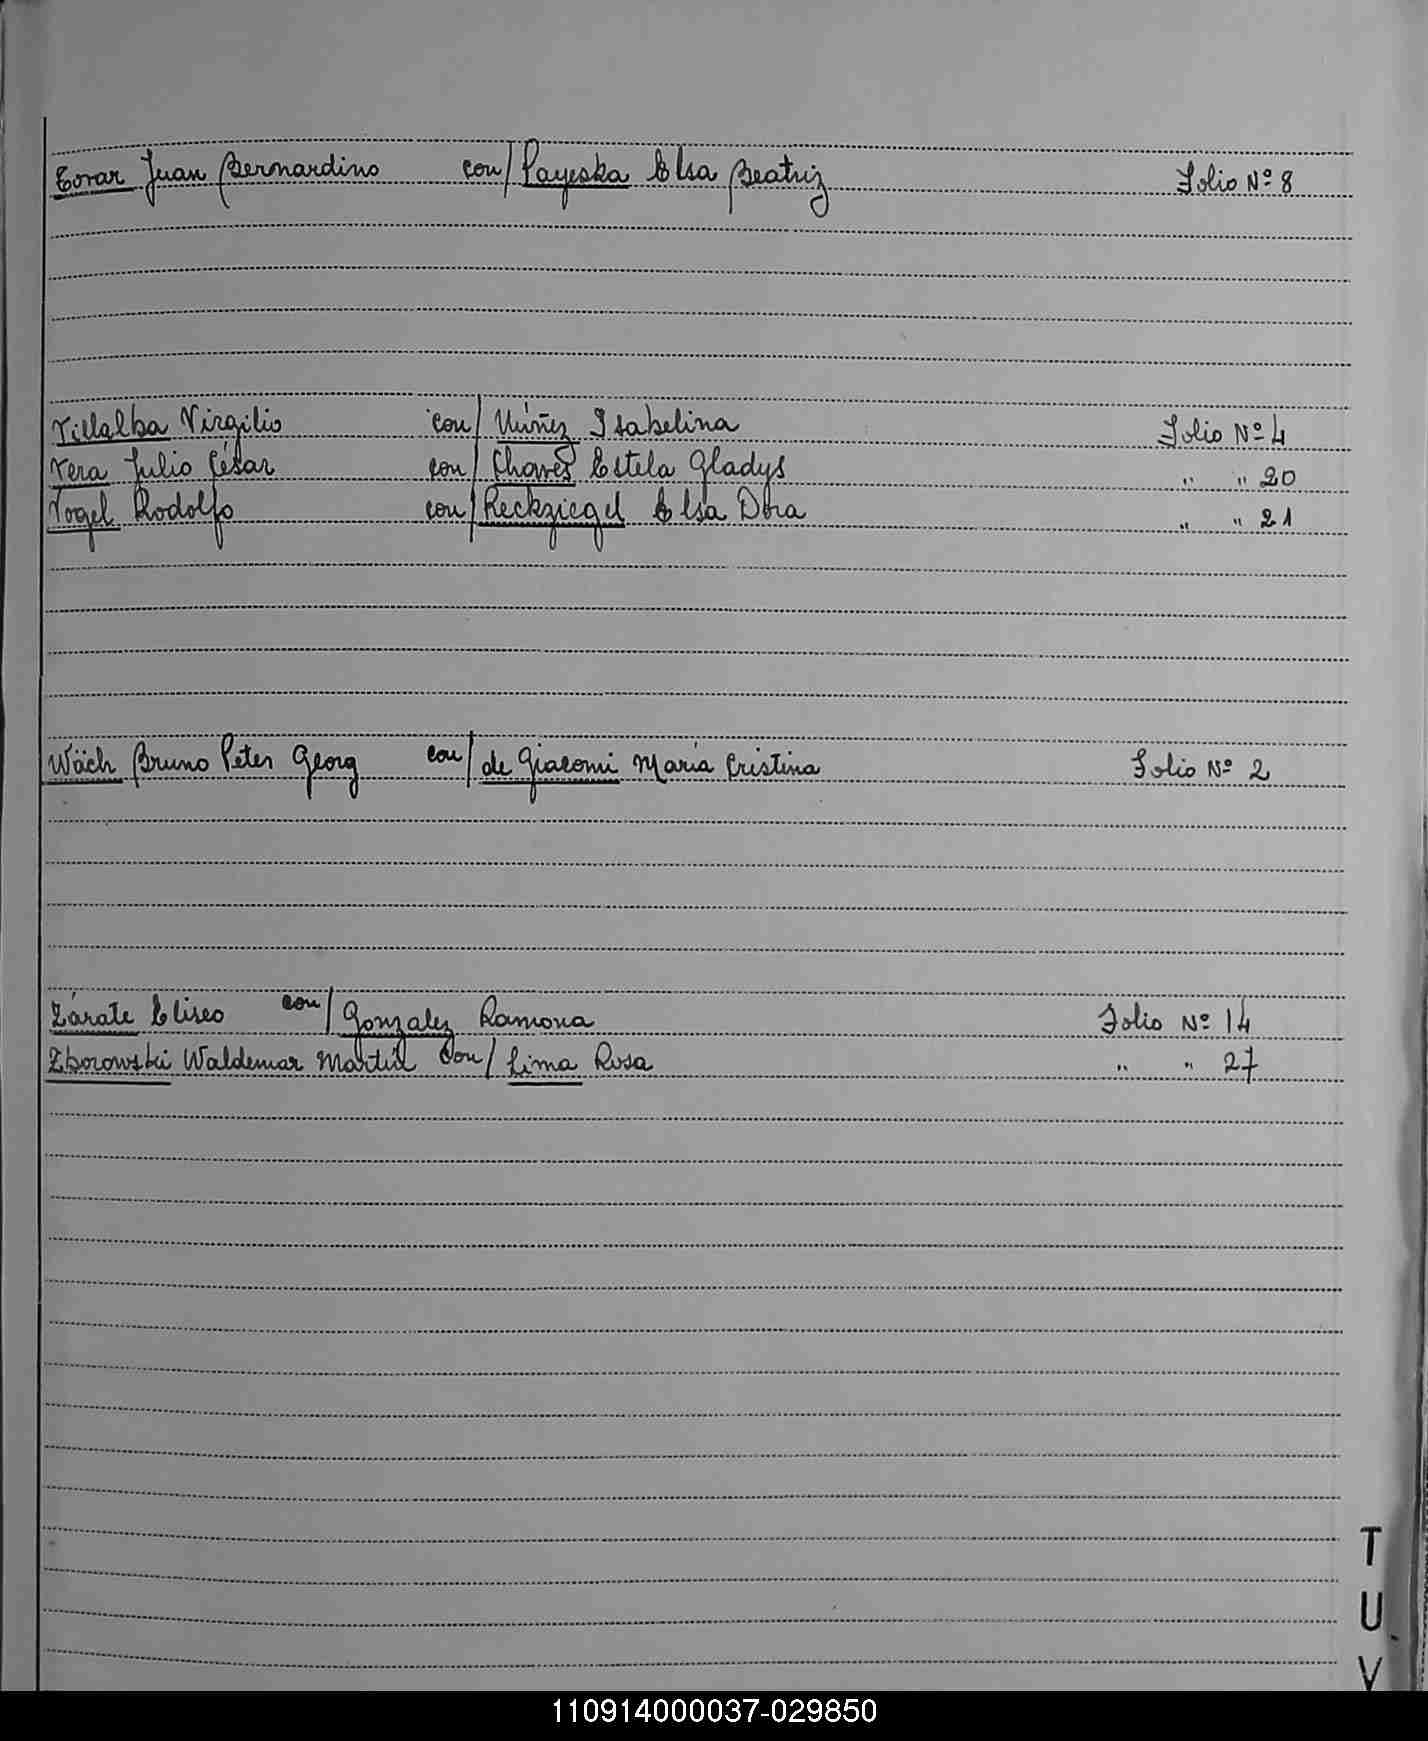 Tovar Juan Bernardino con/ Payeska Elsa Beatriz Folio Nº 8
Villalba Virgilio con/ Núñez Isabelina Folio Nº 4
Vera Julio César con/ Chaves Estela Gladys " " 20
Vogel Rodolfo con/ Reckziegel Elsa Dora " " 21
Wäch Bruno Peter Georg con/ de Giacomi María Cristina Folio Nº 2
Zárate Eliseo con/ Gonzalez Ramona Folio Nº 14
Zborowski Waldemar Martin con/ Lima Rosa " " 27
T
U
V
110914000037-029850